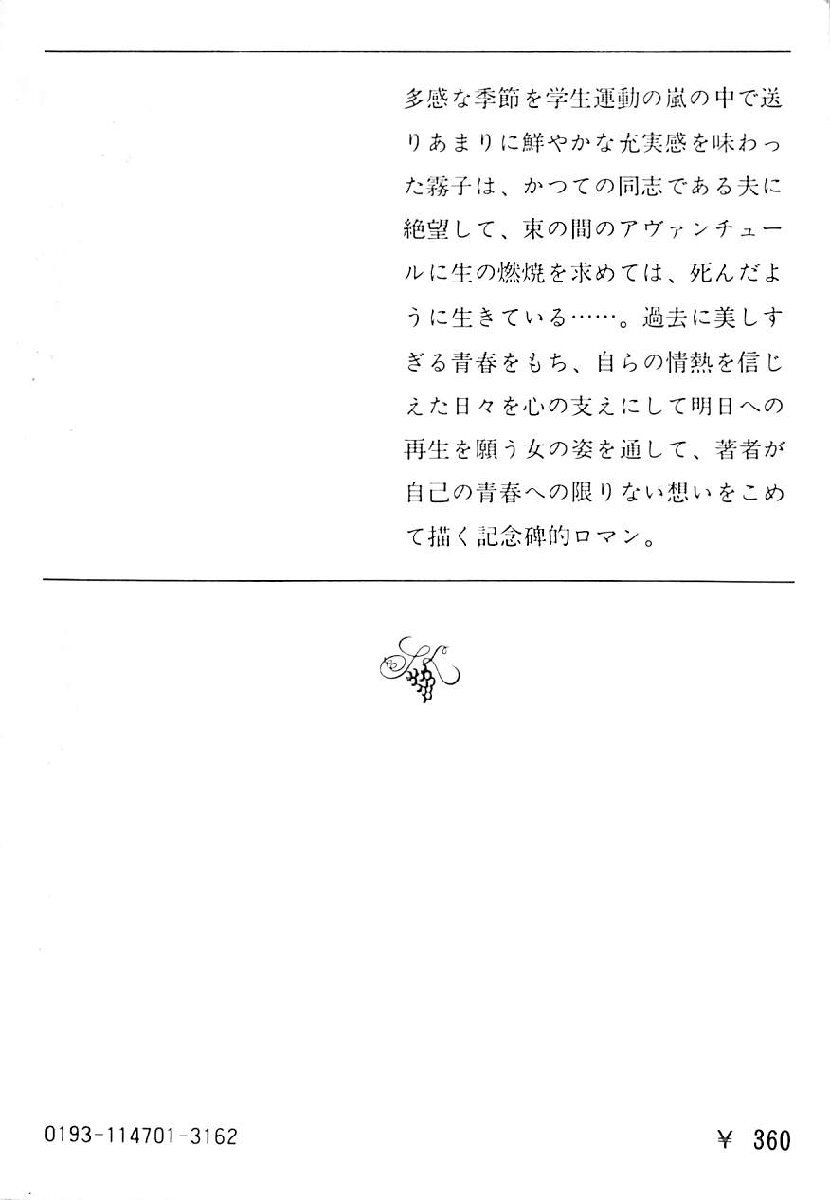 多感な季節を学生運動の嵐の中で送
りあまりに鮮やかな充実感を味わっ
た霧子は、かつての同志である夫に
絶望して、束の間のアヴァンチュー
ルに生の燃焼を求めては、死んだよ
うに生きている……。過去に美しす
ぎる青春をもち、自らの情熱を信じ
えた日々を心の支えにして明日への
再生を願う女の姿を通して、著者が
自己の青春への限りない想いをこめ
て描く記念碑的ロマン。
0193-114701-3162
¥ 360